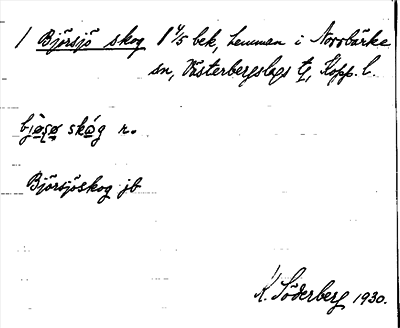 1 Björsjö skog 1 4/5 bek, hemman i Norrbärke
sn, Västerbergslags tg, Kopp. l.
skóg r.
Björsjöskog jb
K. Söderberg 1930.